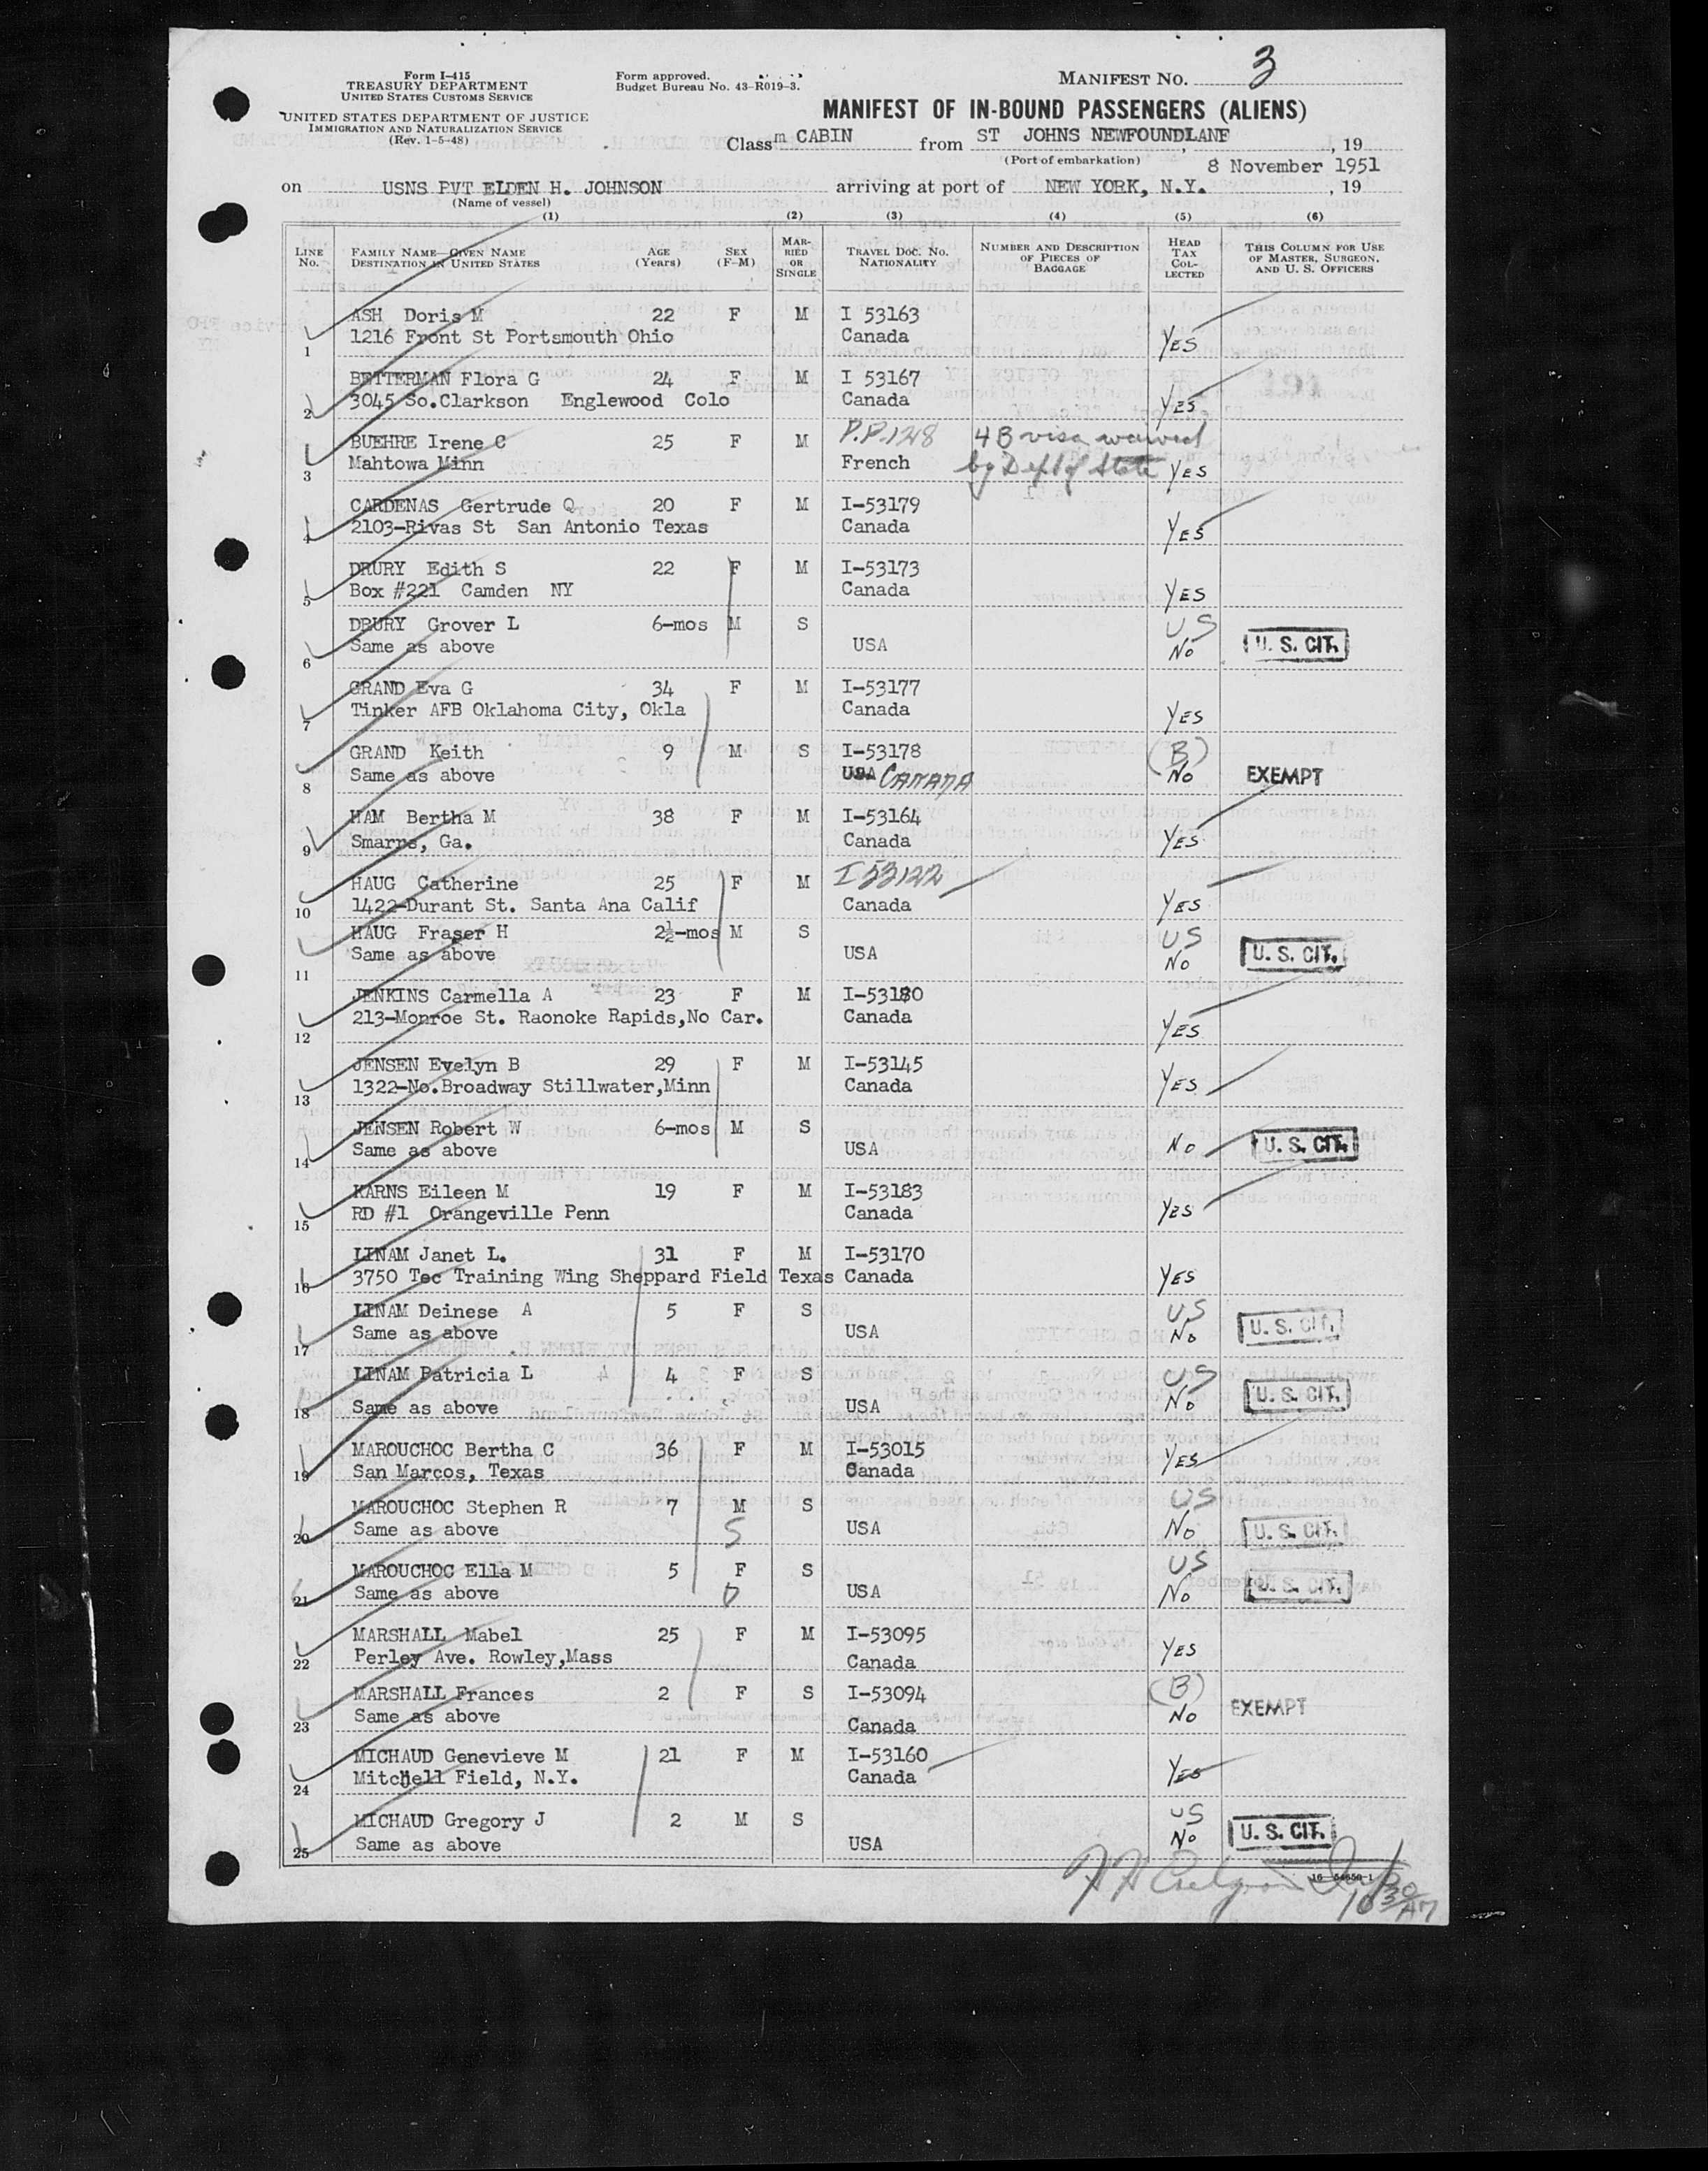 Form I-415
TREASURY DEPARTMENT
UNITED STATES CUSTOMS SERVICE
UNITED STATES DEPARTMENT OF JUSTICE
IMMIGRATION AND NATURALIZATION SERVICE
(Rev. 1-5-48)
Form approved.
Budget Bureau No. 43-R019-3.
MANIFEST NO. 3
MANIFEST OF IN-BOUND PASSENGERS (ALIENS)
Class m CABIN from ST JOHNS NEWFOUNDLANF, 19
(Port of embarkation)
8 November 1951
on USNS PVT ELDEN H. JOHNSON arriving at port of NEW YORK, N.Y., 19
(Name of vessel)
(1) (2) (3) (4) (5) (6)
LINE No. FAMILY NAME—GIVEN NAME DESTINATION IN UNITED STATES AGE (Years) SEX (F-M) MARRIED OR SINGLE TRAVEL DOC. NO. NATIONALITY NUMBER AND DESCRIPTION OF PIECES OF BAGGAGE HEAD TAX COLLECTED THIS COLUMN FOR USE OF MASTER, SURGEON, AND U. S. OFFICERS
ASH Doris M 22 F M I 53163
1 1216 Front St Portsmouth Ohio Canada YES
BETTERMAN Flora G 24 F M I 53167
2 3045 So.Clarkson Englewood Colo Canada YES
BUEHRE Irene C 25 F M P.P.128 4B visa waived
3 Mahtowa Minn French by Dept of State YES
CARDENAS Gertrude Q 20 F M I-53179
4 2103-Rivas St San Antonio Texas Canada YES
DRURY Edith S 22 F M I-53173
5 Box #221 Camden NY Canada YES
DRURY Grover L 6-mos M S US
6 Same as above USA No U. S. CIT.
GRAND Eva G 34 F M I-53177
7 Tinker AFB Oklahoma City, Okla Canada YES
GRAND Keith 9 M S I-53178 (B)
8 Same as above USA CANADA No EXEMPT
HAM Bertha M 38 F M I-53164
9 Smarrs, Ga. Canada YES
HAUG Catherine 25 F M I 53122
10 1422-Durant St. Santa Ana Calif Canada YES
HAUG Fraser H 2½-mos M S US
11 Same as above USA No U. S. CIT.
JENKINS Carmella A 23 F M I-53180
12 213-Monroe St. Raonoke Rapids,No Car. Canada YES
JENSEN Evelyn B 29 F M I-53145
13 1322-No.Broadway Stillwater,Minn Canada YES
JENSEN Robert W 6-mos M S
14 Same as above USA No U. S. CIT.
KARNS Eileen M 19 F M I-53183
15 RD #1 Orangeville Penn Canada YES
LINAM Janet L. 31 F M I-53170
16 3750 Tec Training Wing Sheppard Field Texas Canada YES
LINAM Deinese A 5 F S US
17 Same as above USA No U. S. CIT.
LINAM Patricia L 4 F S US
18 Same as above USA No U. S. CIT.
MAROUCHOC Bertha C 36 F M I-53015
19 San Marcos, Texas Canada YES
MAROUCHOC Stephen R 7 M S US
20 Same as above S USA No U. S. CIT.
MAROUCHOC Ella M 5 F S US
21 Same as above D USA No U. S. CIT.
MARSHALL Mabel 25 F M I-53095
22 Perley Ave. Rowley,Mass Canada YES
MARSHALL Frances 2 F S I-53094 (B)
23 Same as above Canada No EXEMPT
MICHAUD Genevieve M 21 F M I-53160
24 Mitchell Field, N.Y. Canada Yes
MICHAUD Gregory J 2 M S US
25 Same as above USA No U. S. CIT.